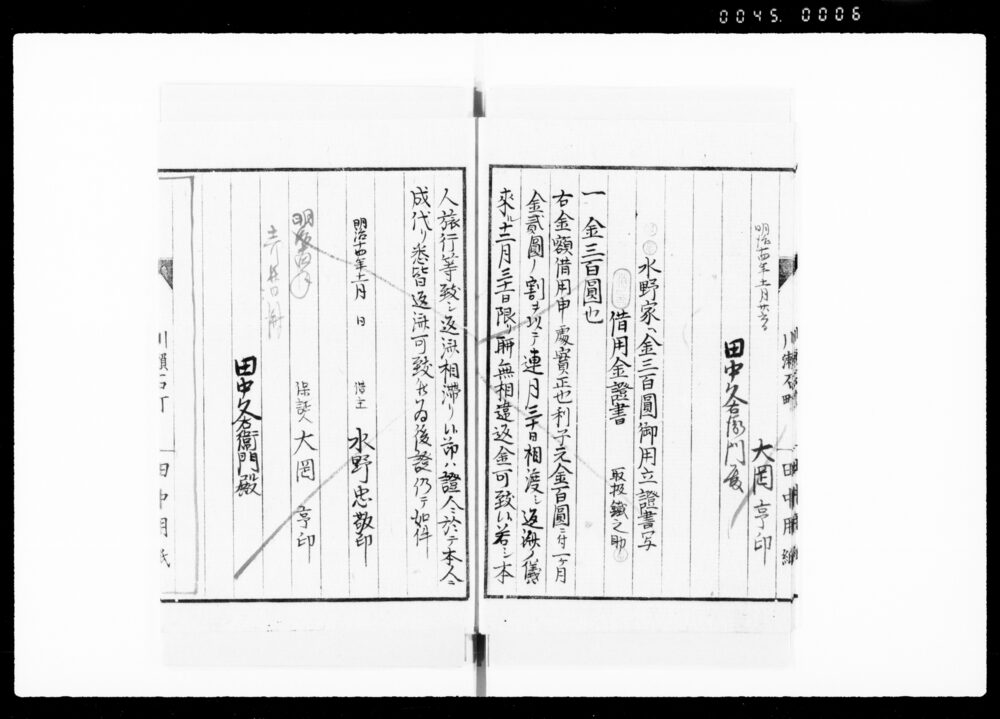 0045.0006
明治十四年十一月廿六日
大岡 亨印
田中久右衛門殿
水野家ヘ金三百圓御用立證書写
借用金證書
取扱 鐵之助
一 金三百圓也
右金額借用申處實正也利子元金百圓ニ付一ヶ月
金貳圓ノ割ヲ以テ連月三十日相渡シ返済ノ儀
來ル十二月三十日限リ聊無相違返金可致候若シ本
人旅行等致シ返済相滞リ候節ハ證人ニ於テ本人ニ
成代リ悉皆返済可致候為後證仍テ如件
明治十四年十一月 日
借主 水野忠敬印
保証人 大岡 亨印
田中久右衛門殿
川瀬石町
田中用紙